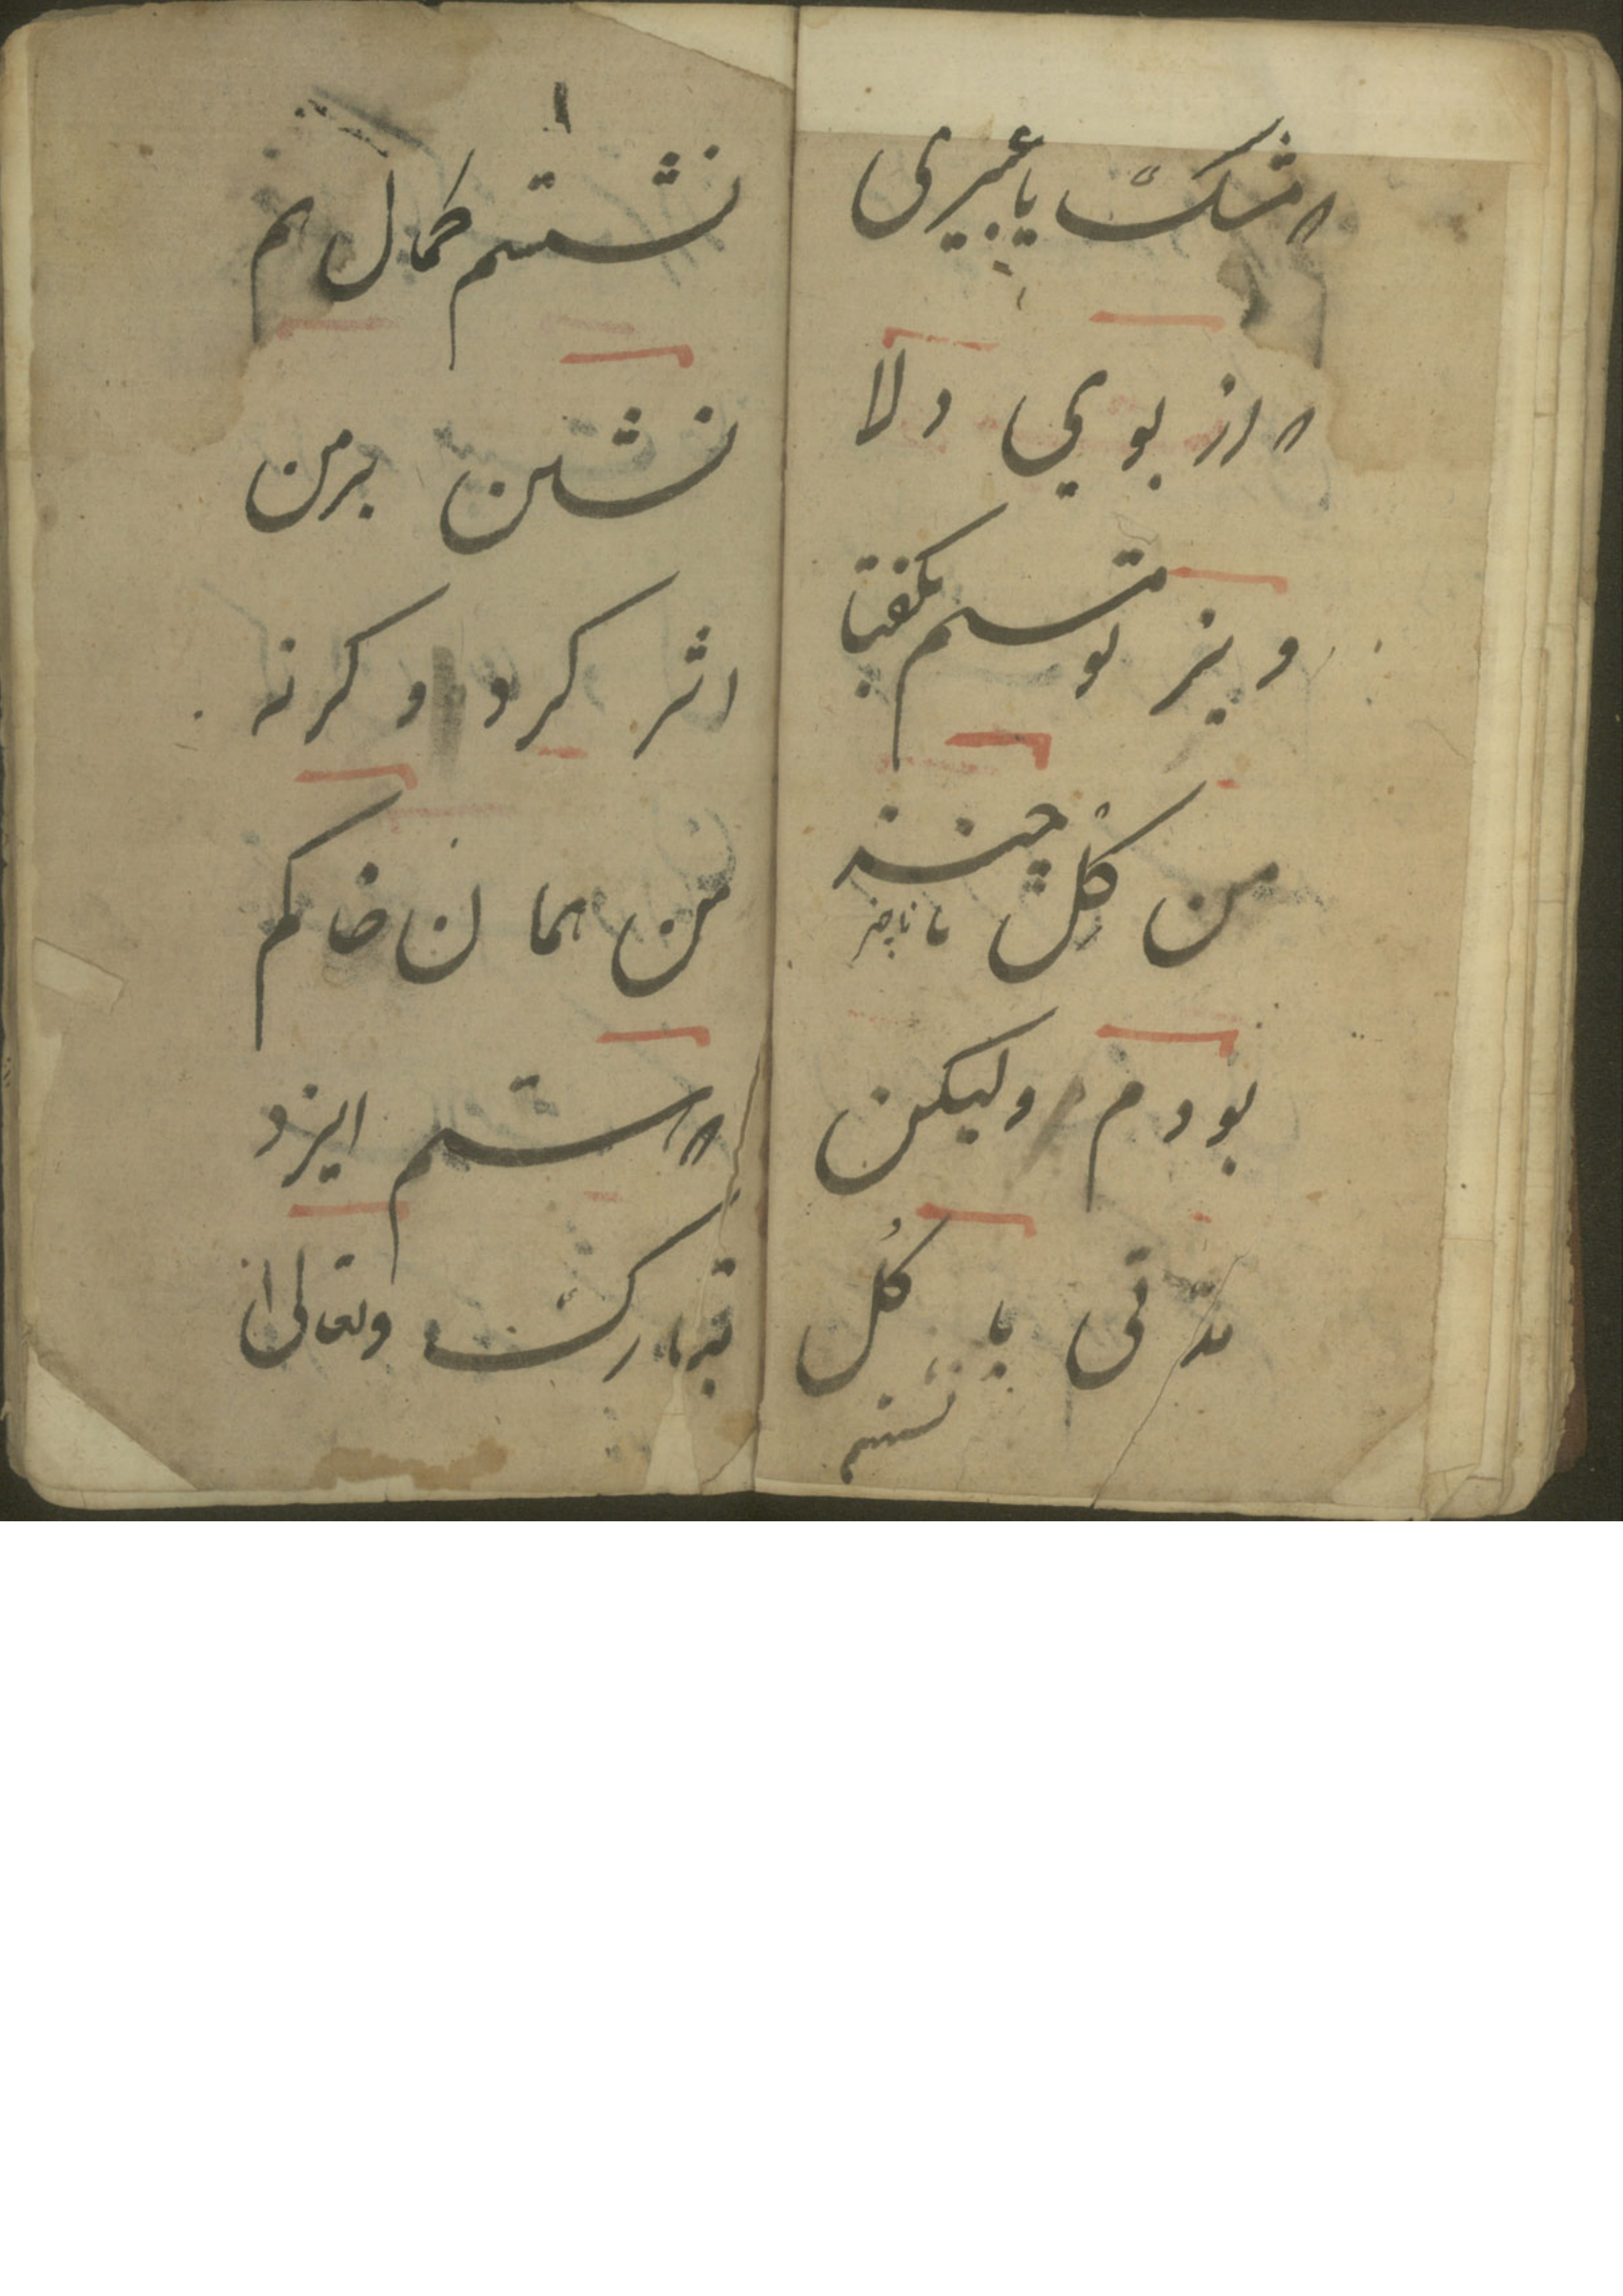 مشک یا عبیری
از بوی دلا
ویز تو مستم بگفتا
من گل چیز
نا ناچیز
بودم ولیکن
مدتی با گل
نشستم
نشستم کمال هم
نشین بر من
اثر کرد وگرنه
من همان خاکم
هستم ایزد
تبارک وتعالی ا